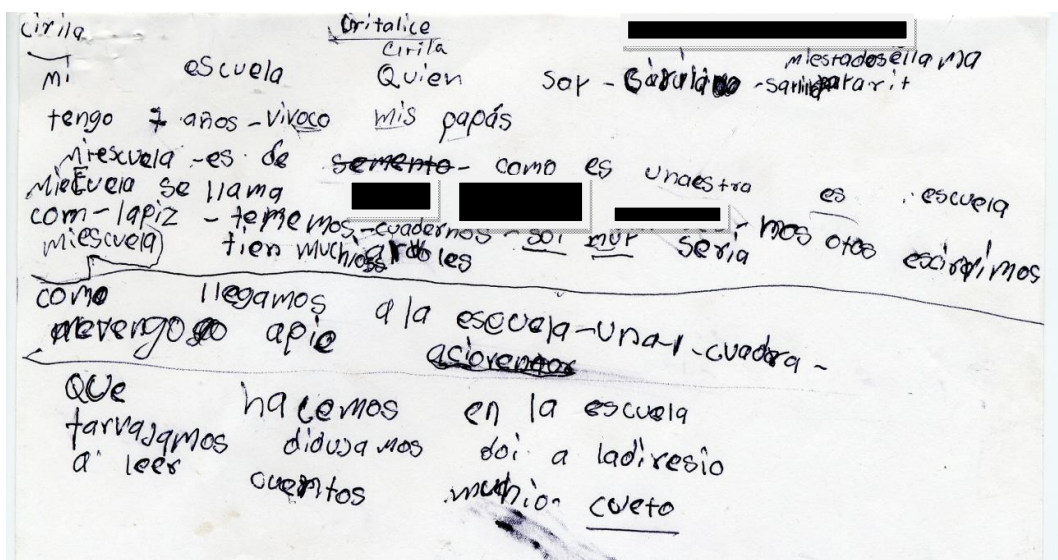 cirila
Critalice
Cirila
miestadosellama
mi escuela Quien soy -
tengo 7 años - vivoco mis papás
miescuela - es de semento - como es unaestra es escuela
mieEcuela se llama
com - lapiz - tememos - cuadernos - soi muy seria mos otos escirpimos
miescuela tien muchios arboles
como llegamos a la escuela - una - 1 - cuadra -
apie
QUe hacemos en la escuela
tarvajamos didujamos doi a ladiresio
a leer cuentos muchio cueto